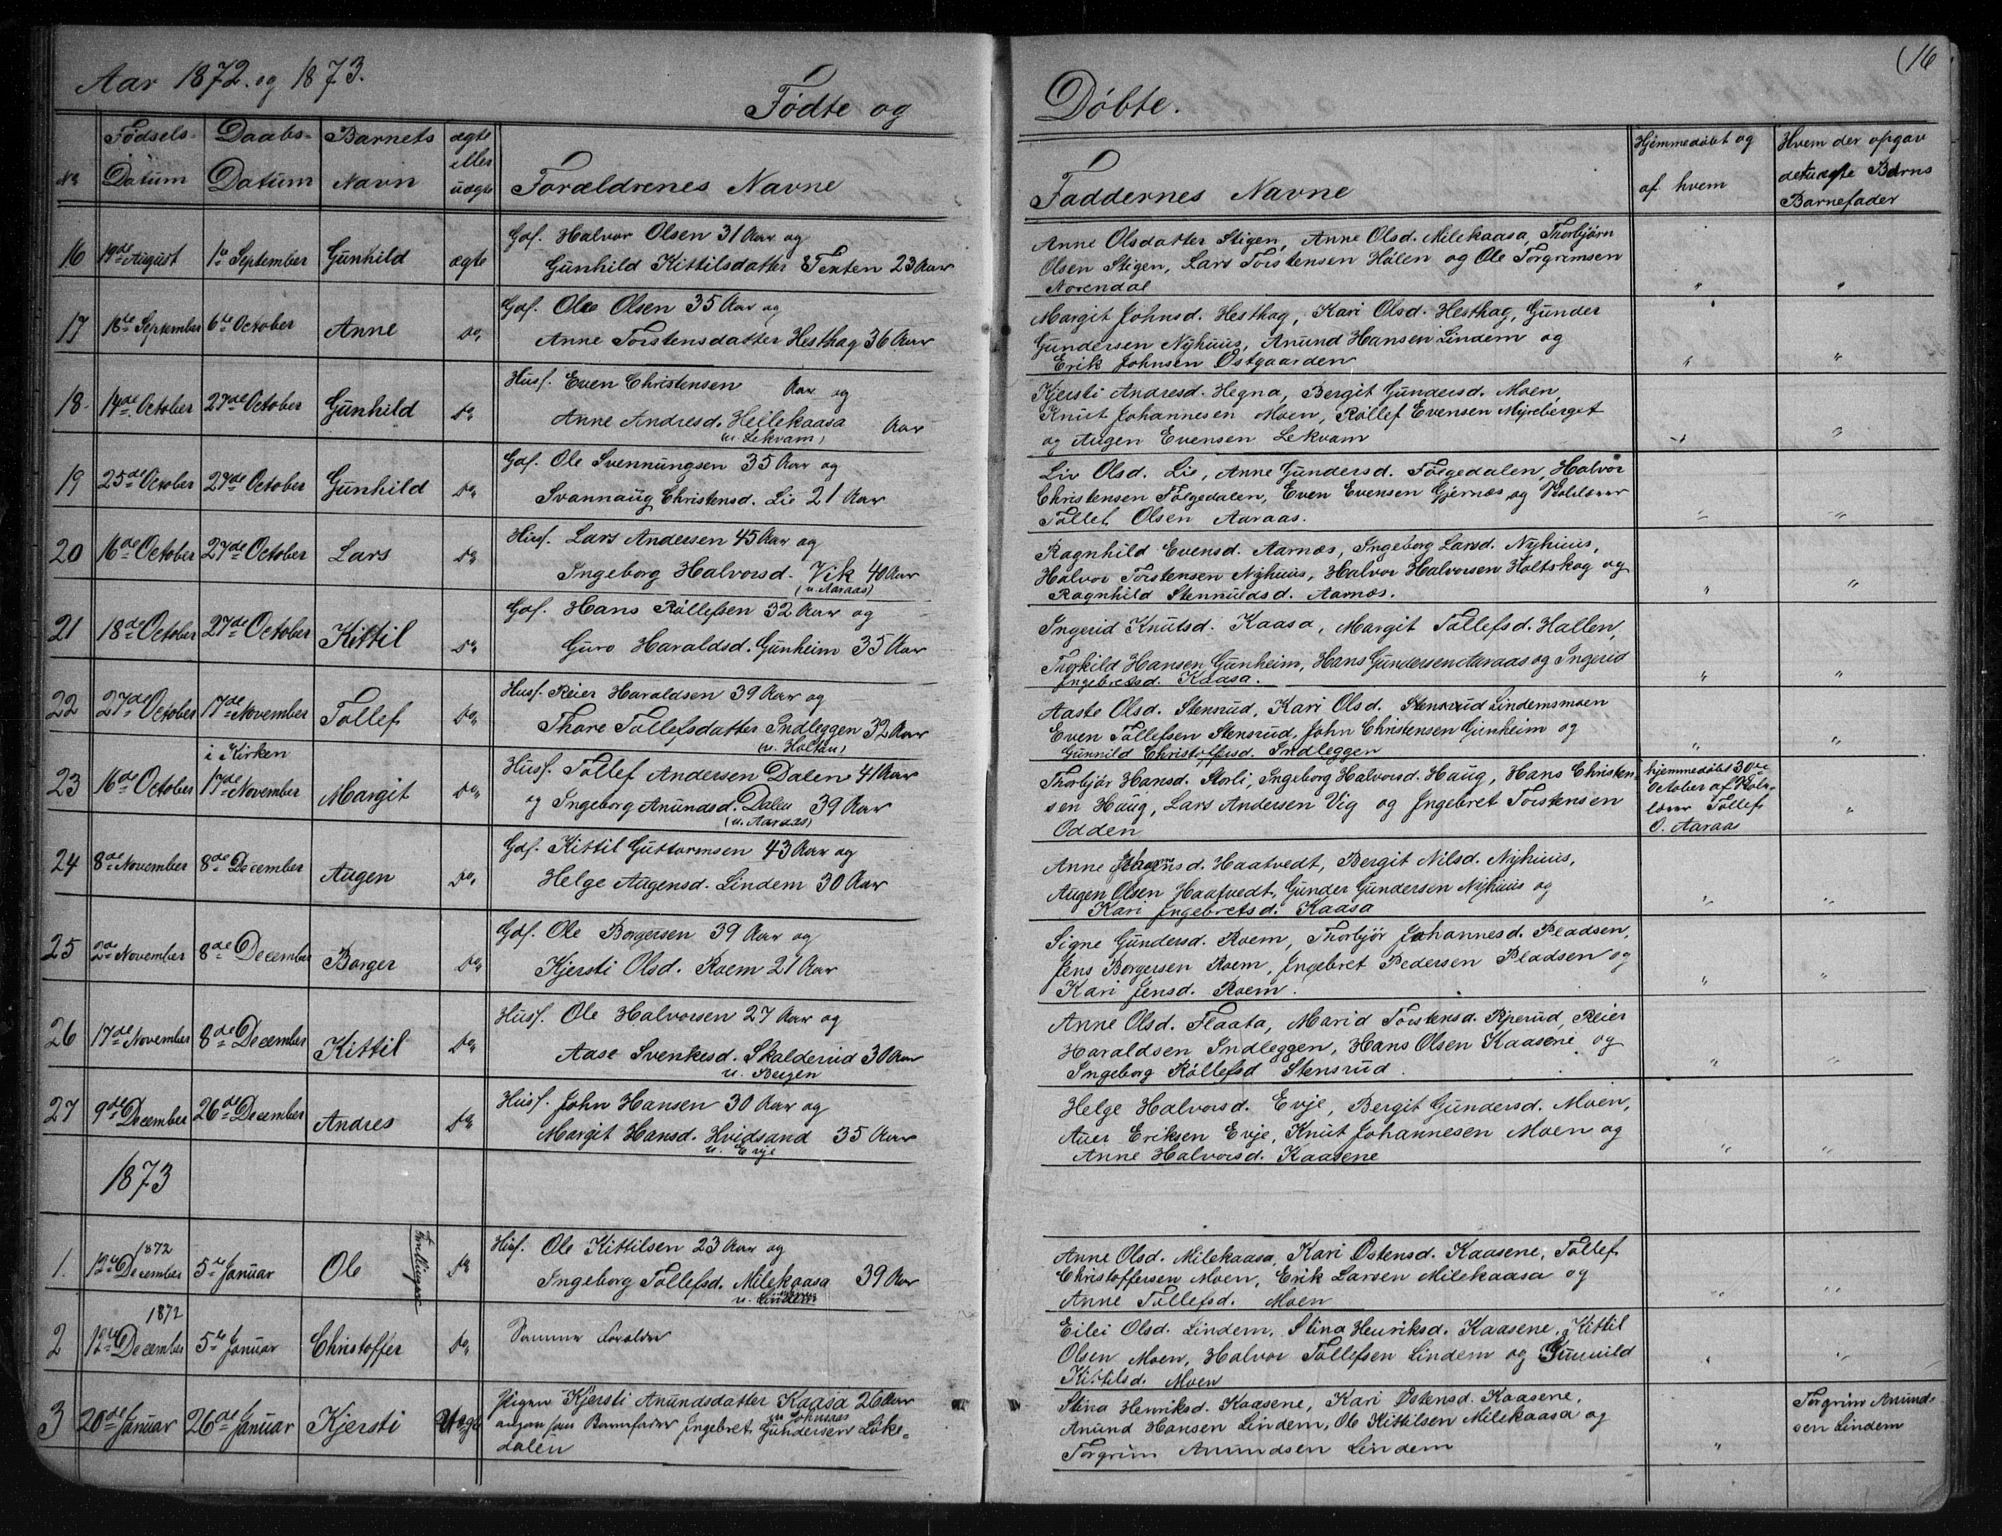 (16
Aar 1872. og 1873.
Fødte og Døbte.
No
Fødsels-
Datum
Daabs-
Datum
Barnets
Navn
ægte
eller
uægte
Forældrenes Navne
Faddernes Navne
Hjemmedøbt og
af hvem
Hvem der opgav
det uægte Barns
Barnefader
16 19de August 1ste September Gunhild ægte
Gdf. Halvor Olsen 31 Aar og
Gunhild Kittilsdatter Tenten 23 Aar
Anne Olsdatter Stigen, Anne Olsd. Milekaasa, Thorbjørn
Olsen Stigen, Lars Torstensen Hølen og Ole Torgrimsen
Norendal
" "
17 18de September 6te October Anne Do
Gdf. Ole Olsen 35 Aar og
Anne Torstensdatter Hesthag 36 Aar
Margit Johnsd. Hesthag, Kari Olsd. Hesthag, Gunder
Gundersen Nyhuus, Anund Hansen Lindem og
Erik Johnsen Østgaarden
" "
18. 14de October 27de October Gunhild Do
Husf. Even Christensen Aar og
Anne Andresd. Heilekaasa Aar
(u. Lekvam)
Kjersti Andresd. Hegna, Bergit Gundersd. Moen,
Knut Johannesen Moen, Rollef Evensen Myreberget
og Augen Evensen Lekvam
" "
19 25de October 27de October Gunhild Do
Gdf. Ole Svennungsen 35 Aar og
Svannaug Christensd. Lie 21 Aar
Liv Olsd. Lie, Anne Gundersd. Følgedalen, Halvor
Christensen Følgedalen, Even Evensen Gjernæs og Kolelærer
Tollef Olsen Aaraas.
" "
20 16de October 27de October Lars Do
Husf. Lars Andersen 45 Aar og
Ingeborg Halvorsd. Vik 40 Aar
(u. Aaraas)
Ragnhild Evensd. Aarnæs, Ingeborg Larsd. Nyhuus,
Halvor Torstensen Nyhuus, Halvor Halvorsen Holtskog og
Ragnhild Stenuldsd. Aarnæs.
" "
21 18de October 27de October Kittil Do
Gdf. Hans Rollefsen 32 Aar og
Guro Haraldsd. Gunheim 35 Aar
Ingerid Knutsd. Kaasa, Margit Tollefsd. Hallen,
Thorkild Hansen Gunheim, Hans Gundersen Aaraas og Ingerid
Ingebretsd. Kaasa.
" "
22 27de October 17de November Tollef Do
Husf. Reier Haraldsen 39 Aar og
Thore Tollefsdatter Indleggen 32 Aar
(u. Holtan)
Aaste Olsd. Stensrud, Kari Olsd. Stensrud Lindemsmoen
Even Tollefsen Stensrud, John Christensen Gunheim og
Gunnild Christoffersd. Indleggen
" "
i Kirken
23 16de October 17de November Margit Do
Husf. Tollef Andersen Dalen 41 Aar
og Ingeborg Anundsd. Dalen 39 Aar
(u. Aaraas)
Thorbjør Hansd. Storli, Ingeborg Halvorsd. Haug, Hans Christen-
sen Haug, Lars Andersen Vig og Ingebret Torstensen
Odden
hjemmedøbt 30te
October af Kole-
lærer Tollef
O. Aaraas
"
24 8de November 8de December Augen Do
Gdf. Kittil Guttormsen 43 Aar og
Helge Augensd. Lindem 30 Aar
Anne Johannesd. Haatvedt, Bergit Nilsd. Nyhuus,
Augen Olsen Haatvedt, Gunder Gundersen Nyhuus og
Kari Ingebretsd. Kaasa
" "
25 2de November 8de December Borger Do
Gdf. Ole Borgersen 39 Aar og
Kjersti Olsd. Roem 21 Aar
Signe Gundersd. Roem, Thorbjør Johannesd. Pladsen,
Jens Borgersen Roem, Ingebret Pedersen Pladsen og
Kari Jensd. Roem.
" "
26 17de November 8de December Kittil Do
Husf. Ole Halvorsen 27 Aar og
Aase Svenkesd. Skalderud 30 Aar
u. Bergen
Anne Olsd. Flaata, Marid Torstensd. Riperud, Reier
Haraldsen Indleggen, Hans Olsen Kaasene og
Ingeborg Rollefsd Stensrud.
" "
27 9de December 26de December Andres Do
Husf. John Hansen 30 Aar og
Margit Hansd. Hvidsand 35 Aar
u. Evje
Helge Halvorsd. Evje, Bergit Gundersd. Moen,
Auer Eriksen Evje, Knut Johannesen Moen og
Anne Halvorsd. Kaasene
" "
1873
1. 12te December 1872 5te Januar Ole Tvillinger Do
Husf. Ole Kittilsen 23 Aar og
Ingeborg Tollefsd. Milekaasa 39 Aar
u. Lindem
Anne Olsd. Milekaasa, Kari Østensd. Kaasene, Tollef
Christoffersen Moen, Erik Larsen Milekaasa og
Anne Tollefsd. Moen
" "
2 12te December 1872 5te Januar Christoffer Do
Samme Forældre
Eilei Olsd. Lindem, Stina Henriksd. Kaasene, Kittil
Olsen Moen, Halvor Tollefsen Lindem og Gunnild
Kittilsd. Moen
" "
3 20de Januar 26de Januar Kjersti Uægte
Pigen Kjersti Anundsdatter Kaasa 26 Aar
angav som Barnefader Ingebret Gundersen Løke-
dalen
Stina Henriksd. Kaasene, Kari Østensd. Kaasene,
Anund Hansen Lindem, Ole Kittilsen Milekaasa og
Torgrim Anundsen Lindem
"
Torgrim Anund-
sen Lindem